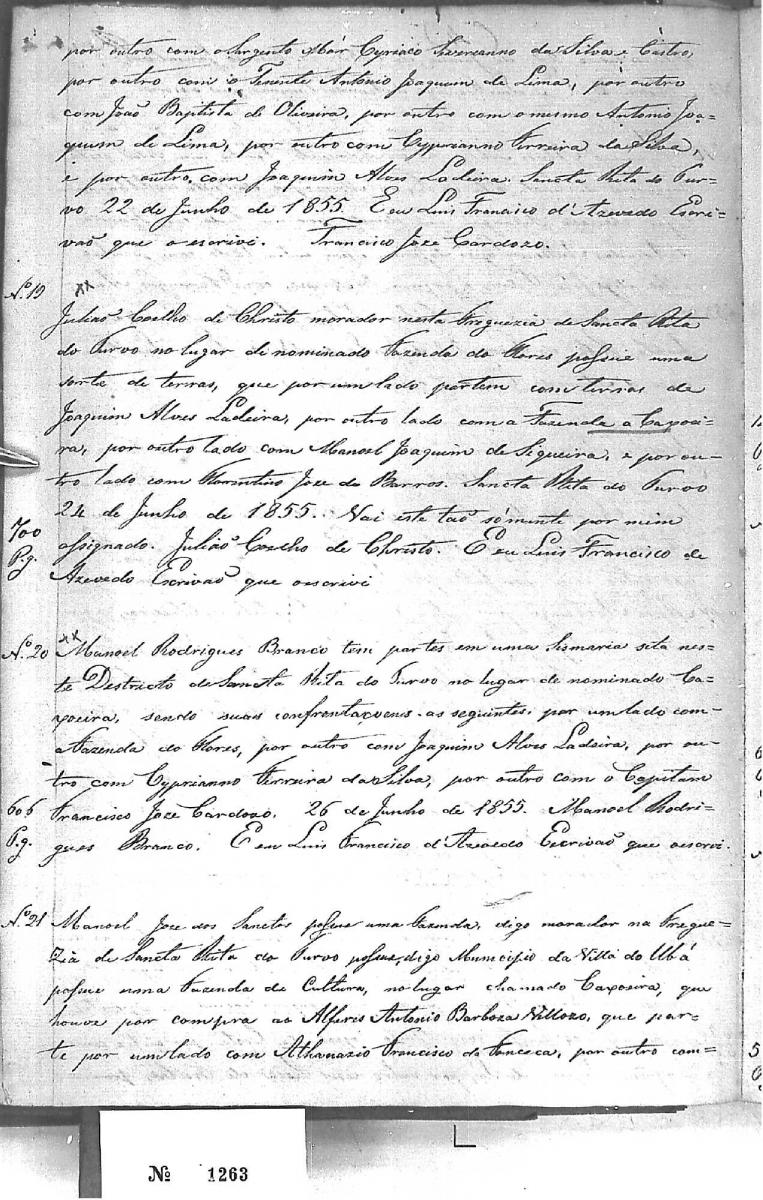 por outro com o Sargento Mór Cyriaco Severianno da Silva e Castro,
por outro com o Tenente Antonio Joaquim de Lima, por outro
com João Baptista de Oliveira, por outro com o mesmo Antonio Joa=
quim de Lima, por outro com Cyprianno Ferreira da Silva,
e por outro com Joaquim Alves Ladeira. Sancta Rita do Tur=
vo 22 de Junho de 1855. E eu Luis Francisco d'Azevedo Escri=
vaõ que o escrivi. Francisco Joze Cardozo.
N.º 19 xx
Juliaõ Coelho de Christo morador nesta Freguezia de Sancta Rita
do Turvo no lugar de nominado Fazenda do Flores possue uma
sorte de terras, que por um lado partem com terras de
Joaquim Alves Ladeira, por outro lado com a Fazenda a Caxoei=
ra, por outro lado com Manoel Joaquim de Siqueira, e por ou=
tro lado com Florentino Joze de Barros. Sancta Rita do Turvo
24 de Junho de 1855. Vai este taõ sómente por mim
700 assignado. Juliaõ Coelho de Christo. E eu Luis Francisco de
P.g. Azevedo Escrivaõ que o escrivi
N.º 20 xx Manoel Rodrigues Branco tem partes em uma Sismaria sita nes=
te Destricto de Sancta Rita do Turvo no lugar de nominado Ca=
xoeira, sendo suas confrontaxoens as seguintes, por um lado com
a Fazenda do Flores, por outro com Joaquim Alves Ladeira, por ou=
tro com Cyprianno Ferreira da Silva, por outro com o Capitam
606 Francisco Joze Cardozo. 26 de Junho de 1855. Manoel Rodri=
P.g. gues Branco. E eu Luis Francisco d'Azevedo Escrivaõ que o escrivi.
N.º 21 Manoel Joze dos Sanctos possue uma Fazenda, digo morador na Fregue=
zia de Sancta Rita do Turvo possue, digo Municipio da Villa do Ubá
possue uma Fazenda de Cultura, no lugar chamado Caxoeira, que
houve por compra ao Alferis Antonio Barboza Villozo, que par=
te por um lado com Athanazio Francisco da Fonceca, por outro com=
Nº 1263